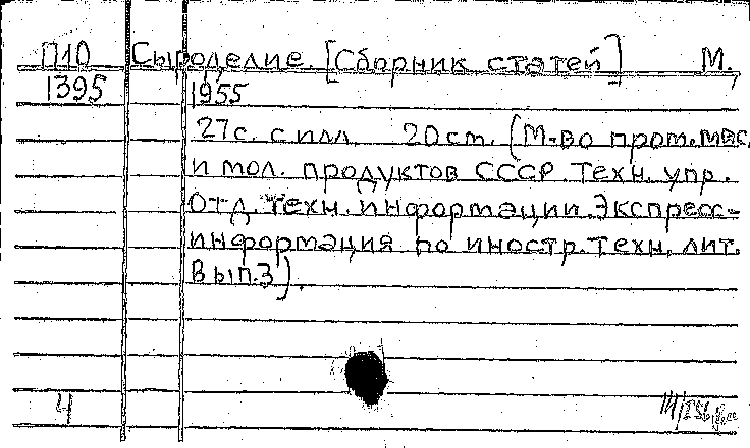 П10 Сыроделие. [Сборник статей] М.,
1395 1955
27с. с илл. 20см. (М-во пром. мяс.
и мол. продуктов СССР. Техн. упр.
Отд. техн. информации. Экспресс-
информация по иностр. техн. лит.
Вып.3).
4